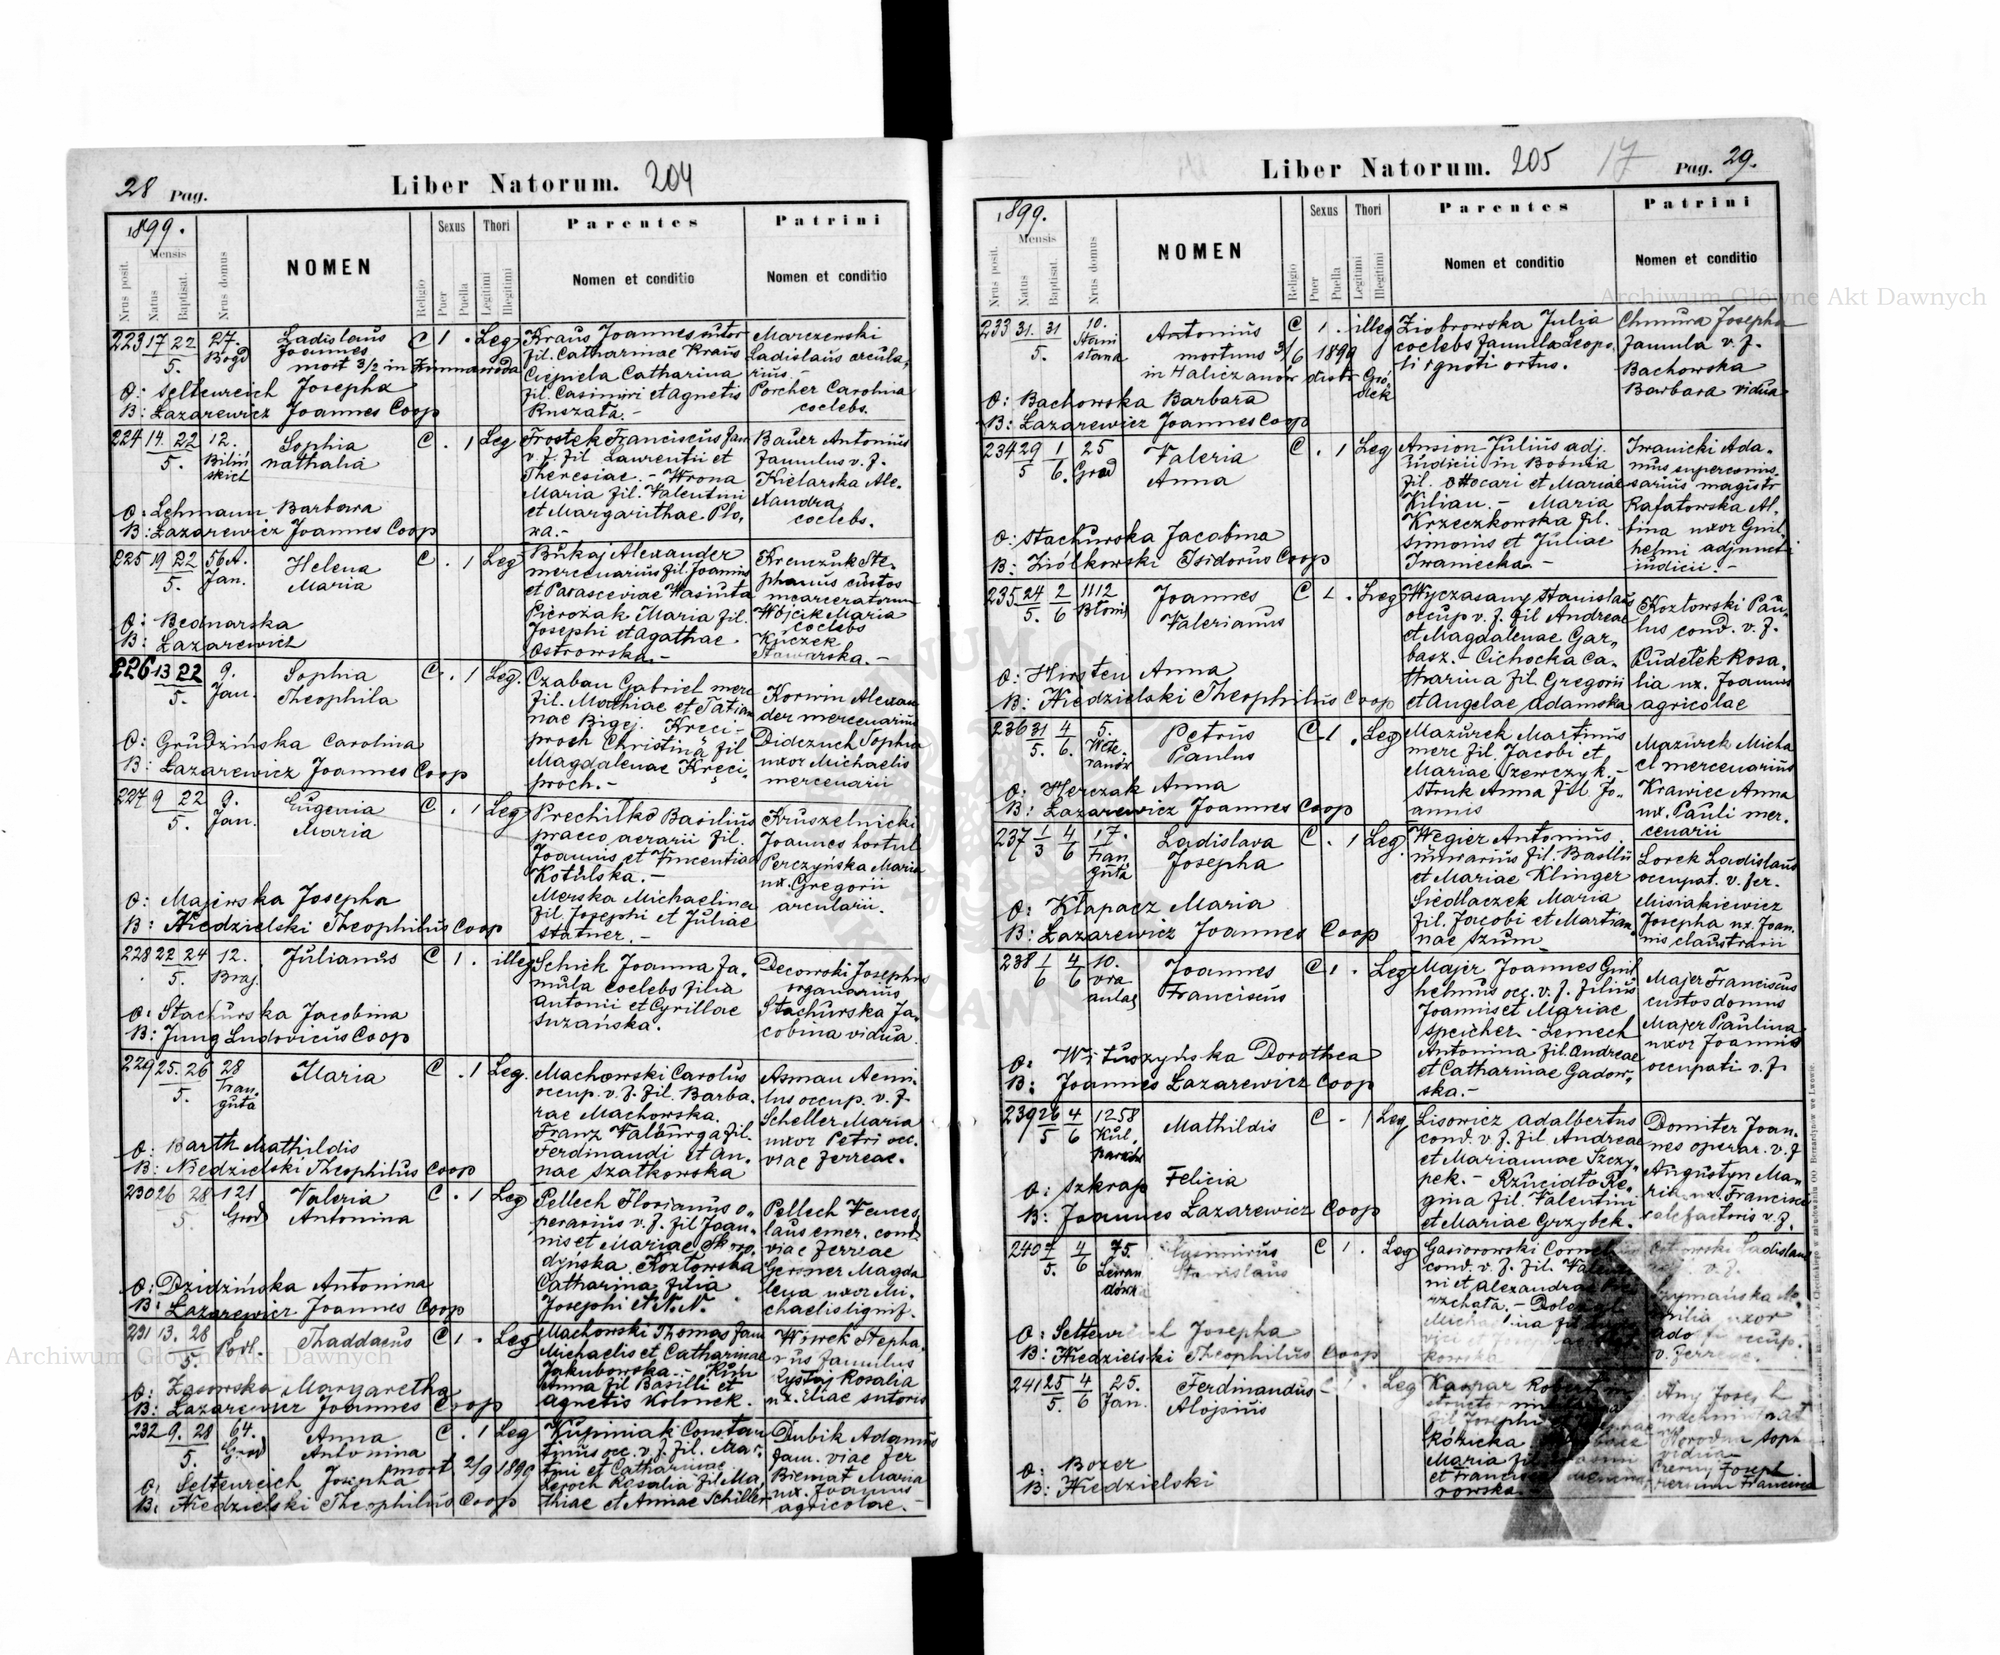 28 Pag.
Liber Natorum. 204
1899.
Nrus posit.
Mensis
Natus
Baptisat.
Nrus domus
NOMEN
Religio
Sexus
Puer
Puella
Thori
Legitimi
Illegitimi
Parentes
Nomen et conditio
Patrini
Nomen et conditio
223 17 22 27. Ladislaus C 1 . Leg Kraus Joannes sutor Marczewski
5. Bogd Joannes fil. Catharinae Kraus Ladislaus arcula,
mort 3/2 in Zimnawoda Ciepiela Catharina rius.-
O: Seltenreich Josepha fil. Casimiri et Agnetis Porcher Carolina
B: Łazarewicz Joannes Coop Ruszata.- coelebs.
224 14. 22 12. Sophia C . 1 Leg Trostek Franciscus fam Bauer Antonius
5. Biliń Nathalia v. f. fil Laurentii et famulus v. f.
skich Theresiae.- Wrona Kielarska Ale,
Maria fil. Valentini xandra
O: Lehmann Barbara et Margarithae Plo, coelebs.
B: Łazarewicz Joannes Coop na.-
225 19 22 56A. Helena C . 1 Leg Bukaj Alexander Krenczuk Ste-
5. Jan. Maria mercenarius fil. Joannis phanus custos
et Parasceviae Wasiuta incarceratorum
O: Bednarska Pierożak Maria fil. Wójcik Maria
B: Łazarewicz Josephi et Agathae coelebs
Ostrowska.- Kuczek
Stawarska.-
226 13 22 9. Sophia C . 1 Leg. Czaban Gabriel merc Korwin Alexan
5. Jan. Theophila fil. Mathiae et Tatian der mercenarius
nae Bigej. Kreci- Didczuch Sophia
O: Grudzińska Carolina proch Christina fil uxor Michaelis
B: Łazarewicz Joannes Coop Magdalenae Kreci- mercenarii
proch.-
227 9 22 9. Eugenia C . 1 Leg Prechitko Basilius Kruszelnicki
5. Jan. Maria praeco aerarii fil. Joannes hortul
Joannis et Vincentiae Perczyńska Maria
Kotulska.- ux. Gregorii
O: Majewska Josepha Merska Michaelina arcularii.
B: Niedzielski Theophilus Coop fil. Josephi et Juliae
Statner.-
228 22 24 12. Julianus C 1 . illeg Schick Joanna fa- Decowski Josephus
5. Braj. mula coelebs filia organarius
O: Stachurska Jacobina Antonii et Cyrillae Stachurska Ja-
B: Jung Ludovicus Coop Suzańska. cobina vidua
229 25. 26 28 Maria C . 1 Leg. Machowski Carolus Asman Aemi-
5. Trau, occup. v. f. fil. Barba, lius occup. v. f
guta rae Machowska. Scheller Maria
O: Barth Mathildis Franz Valburga fil. uxor Petri occ.
B: Niedzielski Theophilus Coop Ferdinandi et An- viae ferreae.
nae Szatkowska
230 26 28 121 Valeria C . 1 Leg Pellech Florianus o- Pellech Vences,
5. Grod Antonina perarius v. f. fil Joan- laus emer. cond
nis et Mariae viae ferreae
Kozłowska Gersner Magda
O: Dzidzińska Antonina Catharina filia lena uxor Mi-
B: Łazarewicz Joannes Coop Josephi et N.N. chaelis lignif.
231 13. 28 Podl. Thaddaeus C 1 . Leg Machowski Thomas fam Wiwek Stepha-
5. Michaelis et Catharinae nus famulus
Jakubowska.- Rosalia
O: Zasowska Margaretha Anna fil Basilii et ux. Eliae sutoris
B: Łazarewicz Joannes Coop Agnetis Kolonek.
232 9. 28 64. Anna C . 1 Leg Kupiniak Constan Dubik Adamus
5. Grod Antonina tinus occ. v. f. fil. Mar, fam. viae fer
mort 2/9 1899 tini et Catharinae Biernat Maria
O: Seltenreich Josepha Leroch Rosalia fil Ma, ux. Joannis
B: Niedzielski Theophilus Coop thiae et Annae Schiller agricolae.-
Liber Natorum. 205 17 Pag. 29.
1899.
Nrus posit.
Mensis
Natus
Baptisat.
Nrus domus
NOMEN
Religio
Sexus
Puer
Puella
Thori
Legitimi
Illegitimi
Parentes
Nomen et conditio
Patrini
Nomen et conditio
233 31. 31 10. Antonius C 1 . illeg Ziobrowska Julia Chmura Josepha
5. Stani mortuus 3/6 1899 coelebs famula Leopo, famula v. f.
sława in Haliczanów distr Gró li ignoti ortus. Bachowska
dek Barbara vidua
O: Bachowska Barbara
B: Łazarewicz Joannes Coop
234 29 1 25 Valeria C . 1 Leg Ansion Julius adj. Iwanicki Ada-
5 6. Grod Anna iudicii in Bobnia mus supercomis,
fil. Ottocari et Mariae sarius magistr
Kilian.- Maria Rafatowska Al-
Krzeczkowska fil. bina uxor Guil,
O: Stachurska Jacobina Simonis et Juliae helmi adjuncti
B: Ziółkowski Isidorus Coop Iwaniecka.- iudicii.-
235 24 2 1112 Joannes C 1 . Leg Wyczasany Stanislaus Kozłowski Pau-
5. 6 Błonie Valerianus occup v. f. fil Andreae lus cond. v. f.
et Magdalenae Gar, Pudełek Rosa-
O: Hirsten Anna basz.- Cichocka Ca- lia ux. Joannis
B: Niedzielski Theophilus Coop tharina fil Gregorii agricolae
et Angelae Adamska
236 31 4 5. Petrus C 1 . Leg Mazurek Martinus Mazurek Micha
5. 6. Wete- Paulus merc fil. Jacobi et el mercenarius
ranów Mariae Szewczyk.- Krawiec Anna
O: Herczak Anna Struk Anna fil Jo- ux. Pauli mer-
B: Łazarewicz Joannes Coop annis cenarii
237 1 4 17. Ladislava C . 1 Leg. Węgier Antonius Lorek Ladislaus
3 6 Trau, Josepha murarius fil. Basilii occupat. v. fer.
guta et Mariae Klinger Misiakiewicz
O: Kłapacz Maria Siedlaczek Maria Josepha ux. Joan,
B: Łazarewicz Joannes Coop fil. Jacobi et Martian, nis claustrarii
nae Szum
238 1 4 10. Joannes C 1 . Leg Majer Joannes Guil Majer Franciscus
6 6 Franciscus helmus occ. v. f. filius custos domus
Joannis et Mariae Majer Paulina
Speicher - Lemech uxor Joannis
O: Wituszyńska Dorothea Antonina fil. Andreae occupati v. f.
B: Joannes Łazarewicz Coop et Catharinae Gadow,
ska.-
239 26 4 1258 Mathildis C - 1 Leg Lisowicz Adalbertus Domiter Joan-
5 6 Kul, cond. v. f. fil. Andreae nes operar. v. f
parków et Mariannae Szczy, Augustyn Ma-
O: Szkrap Felicia pek.- Rzucidło Re, ria ux. Francisci
B: Joannes Łazarewicz Coop gina fil. Valentini calefactoris v. f.
et Mariae Grzybek.
240 7 4 75. Casimirus C 1 . Leg Gasiorowski Ladislaus
5. 6 Lewan Stanislaus cond. v. f. fil. v. f.
dówka ni et Alexandrae Szymańska
O: Seltenreich Josepha uxor
B: Niedzielski Theophilus Coop occup.
kowska v. ferreae.
241 25 4 25. Ferdinandus 1 . Leg Kaspar Robert
5. 6 Jan. Aloisius fil Josephi et
Różicka
O: Bozer Maria fil vidua
B: Niedzielski et Josepl
rowska Francisca
Archiwum Główne Akt Dawnych
Archiwum Główne Akt Dawnych